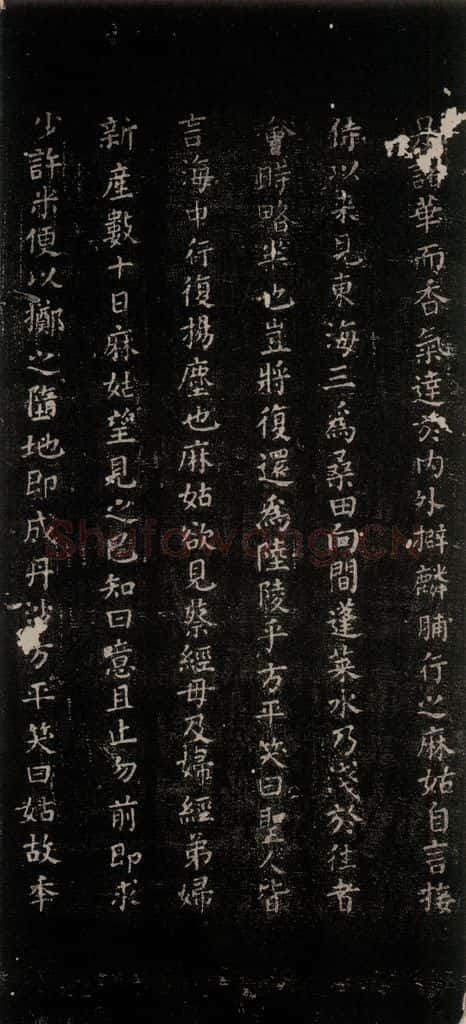 是諸華而香氣達於内外擗麟脯行之麻姑自言接
侍以来見東海三爲桑田向間蓬萊水乃淺於往者
會時略半也豈將復還爲陸陵乎方平笑曰聖人皆
言海中行復揚塵也麻姑欲見蔡經母及婦經弟婦
新産數十日麻姑望見之已知曰意且止勿前即求
少許米便以擲之墮地即成丹沙方平笑曰姑故年
Shufawang.CN